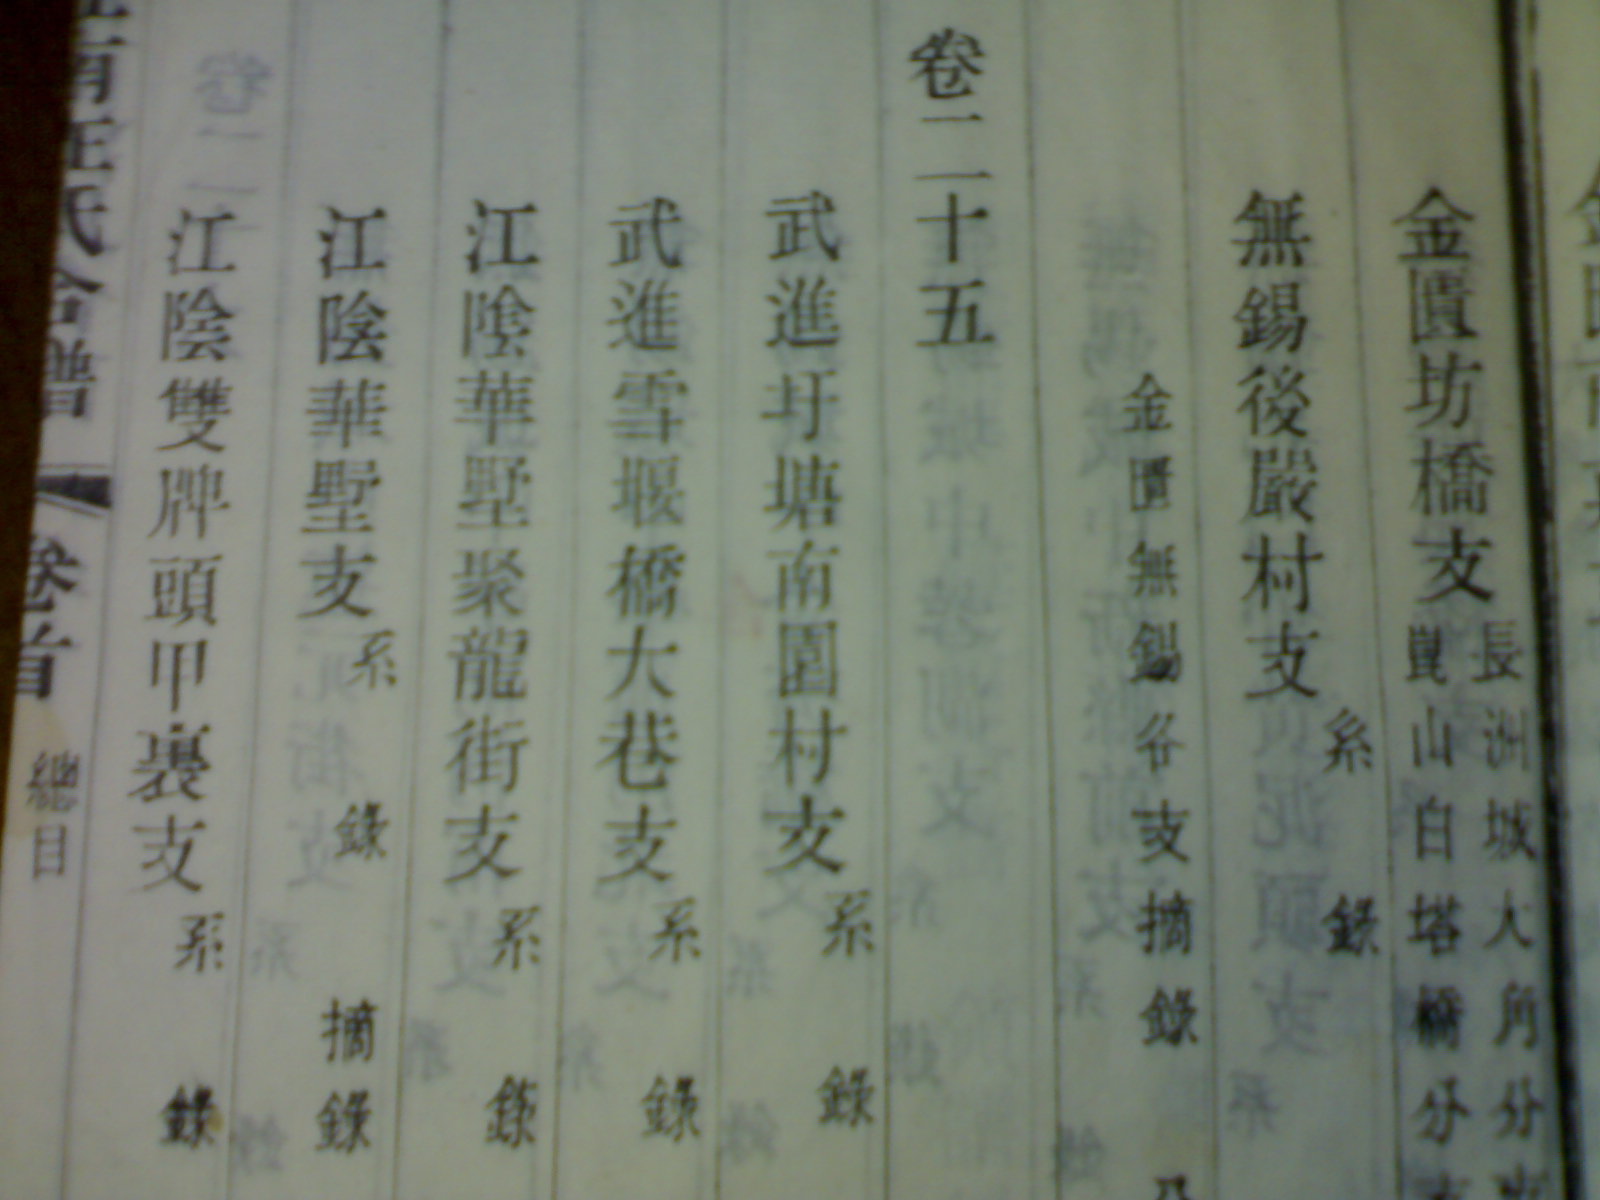 金匱坊橋支
長洲城大角分
崑山白塔橋分
無錫後嚴村支 系 錄
金匱無錫各支摘錄
卷二十五
武進圩塘南園村支 系 錄
武進雪堰橋大巷支 系 錄
江陰華墅聚龍街支 系 錄
江陰華墅支 系 錄 摘錄
江陰雙牌頭甲裏支 系 錄
南汪氏合譜 卷首 總目